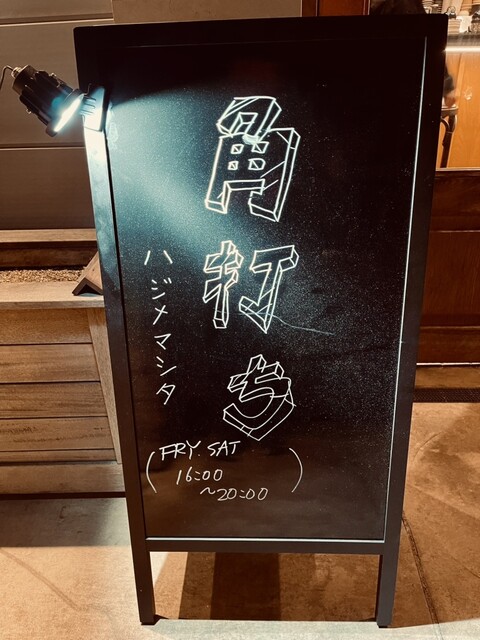 角打ち
ハジメマシタ
(FRY. SAT
16:00
~20:00)